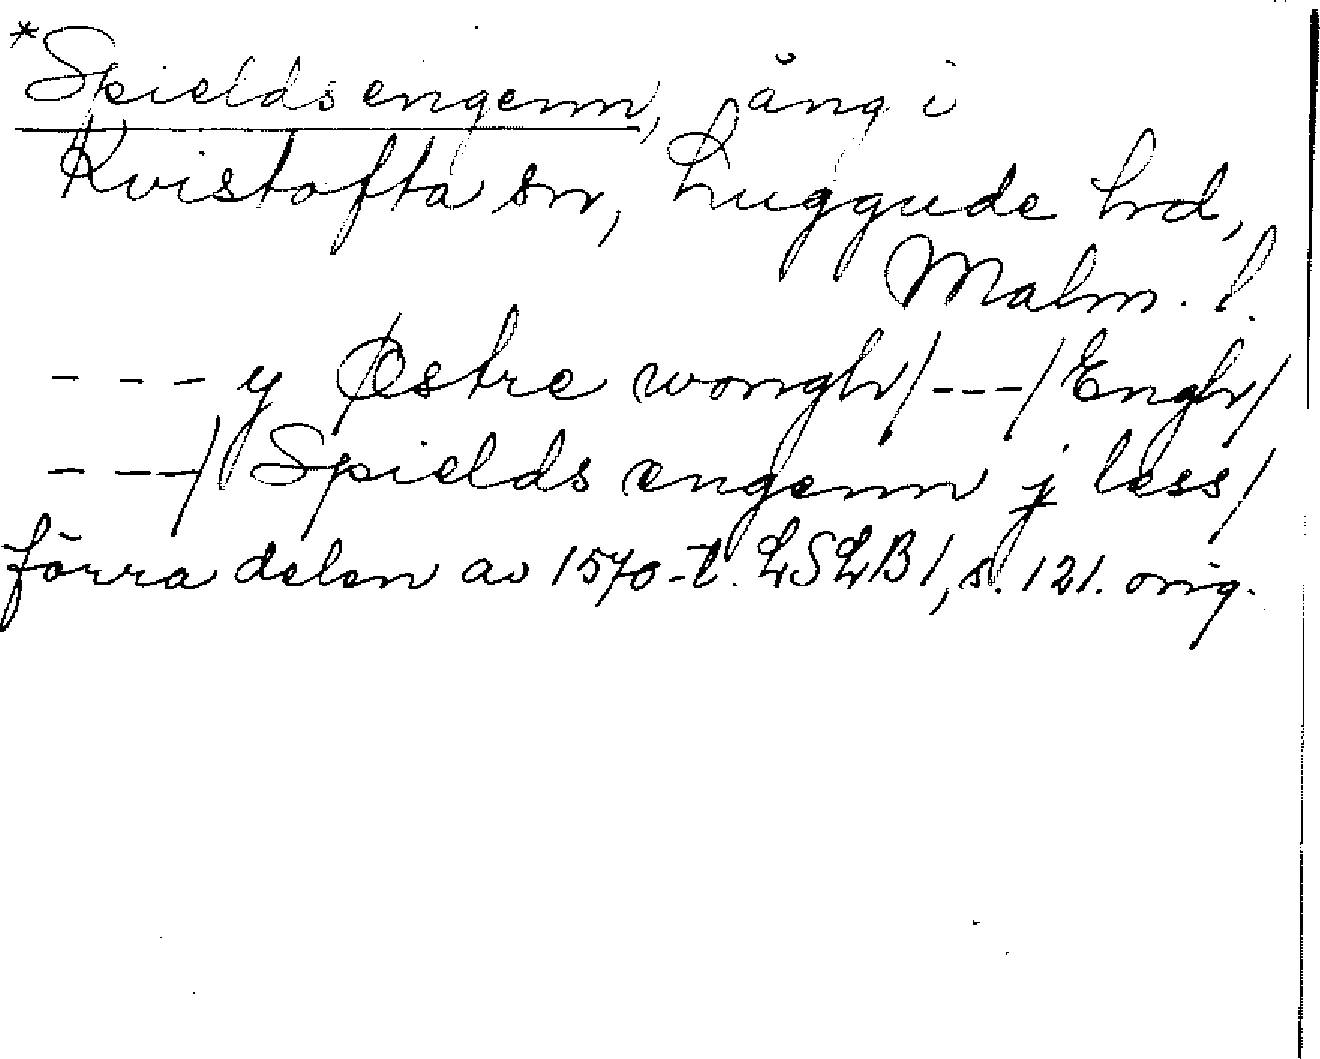 *Spieldsengenn, äng i
Kvistofta sn, Luggude hd,
Malm. l.
--- y Østre wongh/---/Engh/
---/Spields engenn j less/
förra delen av 1570-t. LSLB1, s. 121. orig.